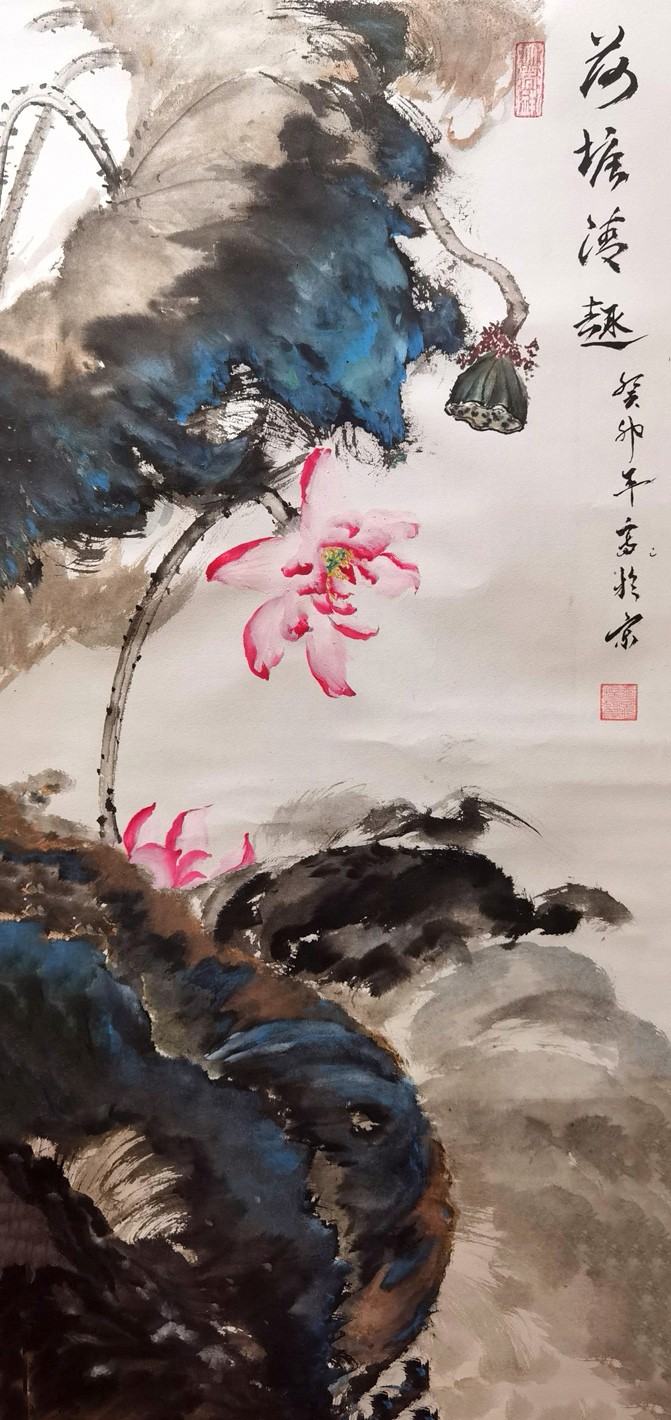 荷塘清趣
癸卯年寫於京